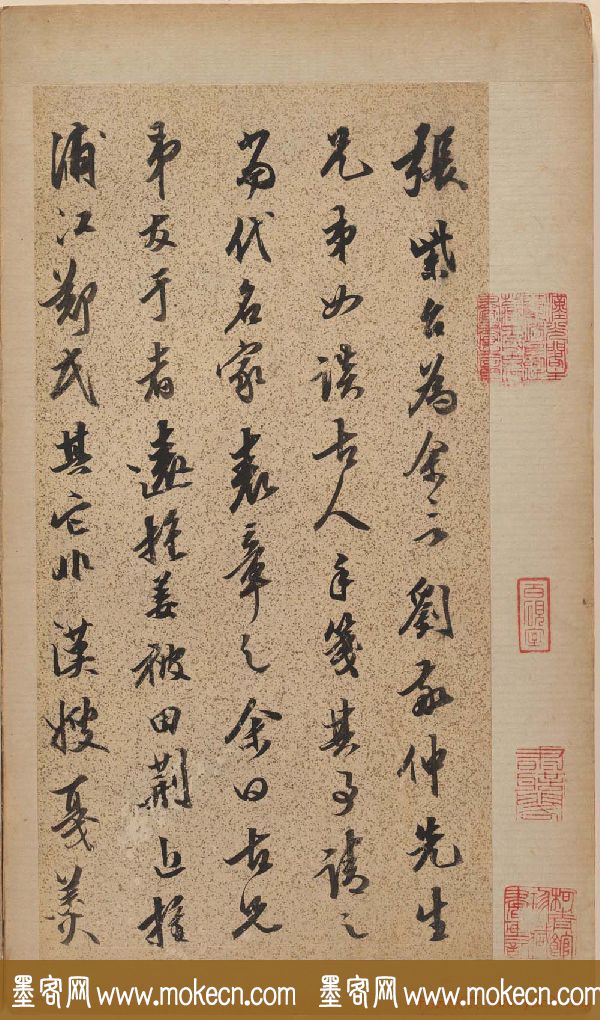 張紫台為余言劉仲先生
兄弟如古人手箋其請之
當代名家表章之余曰古兄
弟友于者遠推姜被田荆近推
浦江鄭氏其它非漢嫂戛羹
墨客网 www.mokecn.com 墨客网 www.mokecn.com